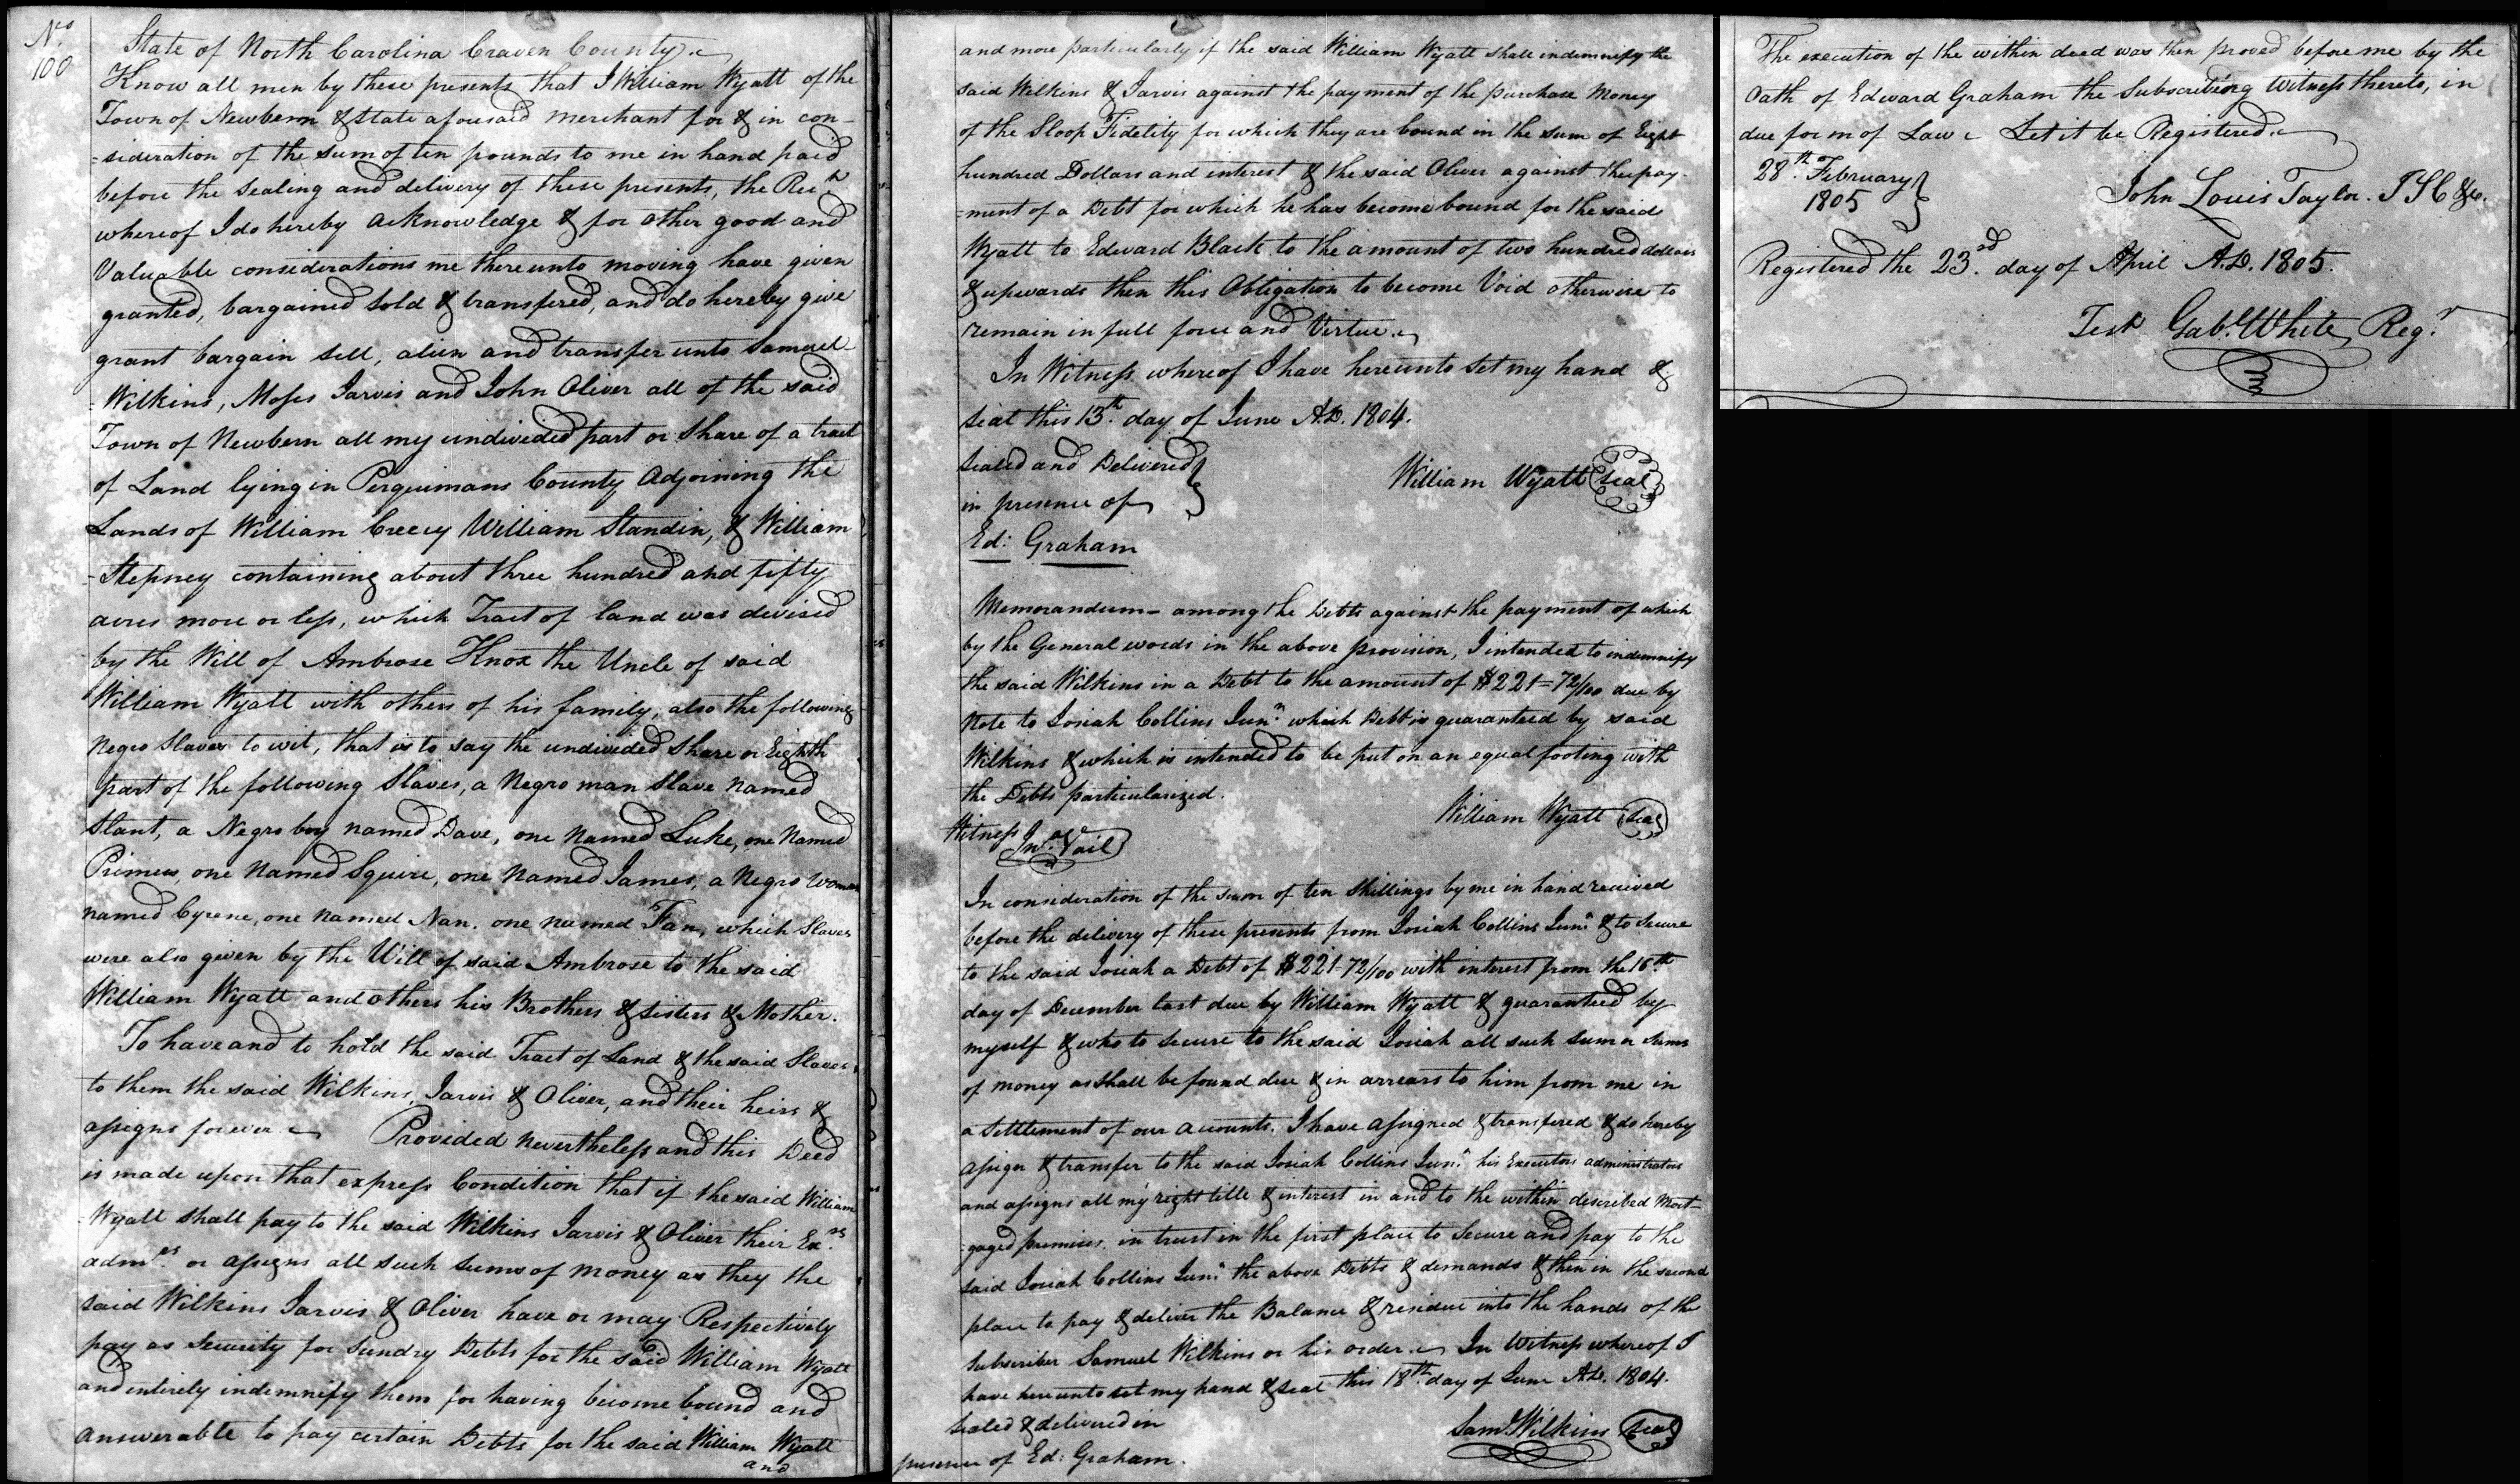 No.
100
State of North Carolina Craven County.
Know all men by these presents that I William Wyatt of the
Town of Newbern & State aforesaid merchant for & in con-
=sideration of the sum of ten pounds to me in hand paid
before the sealing and delivery of these presents, the Rect
whereof I do hereby acknowledge & for other good and
Valuable considerations me thereunto moving have given
granted, bargained sold & transfered, and do hereby give
grant bargain sell, alien and transfer unto Samuel
=Wilkins, Moses Jarvis and John Oliver all of the said
Town of Newbern all my undivided part or share of a tract
of Land lying in Perquimans County Adjoining the
Lands of William Creecy William Standin, & William
=Stepney containing about three hundred and fifty
acres more or less, which Tract of land was devised
by the Will of Ambrose Knox the Uncle of said
William Wyatt with others of his family, also the following
Negro Slaves to wit, that is to say the undivided share or Eighth
part of the following Slaves, a Negro man Slave named
Slant, a Negro boy named Dave, one named Luke, one Named
Primus, one Named Squire, one Named James, a Negro Woman
named Cyrene, one named Nan, one named Fan, which Slaves
were also given by the Will of said Ambrose to the said
William Wyatt and others his Brothers & sisters & Mother.
To have and to hold the said Tract of Land & the said Slaves,
to them the said Wilkins, Jarvis & Oliver, and their heirs &
assigns forever. Provided nevertheless and this Deed
is made upon that express Condition that if the said William
=Wyatt shall pay to the said Wilkins Jarvis & Oliver their Exrs
admrs or assigns all such sums of money as they the
said Wilkins Jarvis & Oliver have or may Respectively
pay as Security for sundry Debts for the said William Wyatt
and entirely indemnify them for having become bound and
answerable to pay certain Debts for the said William Wyatt
and
and more particularly if the said William Wyatt shall indemnify the
said Wilkins & Jarvis against the payment of the purchase Money
of the Sloop Fidelity for which they are bound in the sum of Eight
hundred Dollars and interest & the said Oliver against the pay-
=ment of a Debt for which he has become bound for the said
Wyatt to Edward Black to the amount of two hundred dollars
& upwards then this Obligation to become Void otherwise to
remain in full force and Virtue.
In Witness whereof I have hereunto set my hand &
seal this 13th day of June A.D. 1804.
Sealed and Delivered
in presence of
William Wyatt Seal
Ed: Graham
Memorandum- among the Debts against the payment of which
by the General words in the above provision, I intended to indemnify
the said Wilkins in a Debt to the amount of $221=72/100 due by
Note to Josiah Collins Junr. which Debt is guaranteed by said
Wilkins & which is intended to be put on an equal footing with
the Debts particularized.
William Wyatt Seal
Witness Jno. Vail
In consideration of the sum of ten shillings by me in hand received
before the delivery of these presents from Josiah Collins Junr. & to Secure
to the said Josiah a Debt of $221-72/100 with interest from the 16th
day of December last due by William Wyatt & guaranteed by
myself & who to secure to the said Josiah all such sum or sums
of money as shall be found due & in arrears to him from me in
a settlement of our accounts. I have assigned & transfered & do hereby
assign & transfer to the said Josiah Collins Junr. his Executors administrators
and assigns all my right title & interest in and to the within described Mort-
=gaged premises, in trust in the first place to Secure and pay to the
said Josiah Collins Junr. the above Debts & demands & then in the second
place to pay & deliver the Balance & residue into the hands of the
subscriber Samuel Wilkins or his order. In Witness whereof I
have hereunto set my hand & seal this 18th day of June A.D. 1804.
Sealed & delivered in
presence of Ed: Graham.
Saml Wilkins Seal
The execution of the within deed was then proved before me by the
Oath of Edward Graham the Subscribing Witness thereto, in
due form of Law Let it be Registered.
28th February
1805
John Louis Taylor. J S C &c.
Registered the 23rd day of April A.D. 1805.
Test Gabl. White, Regr